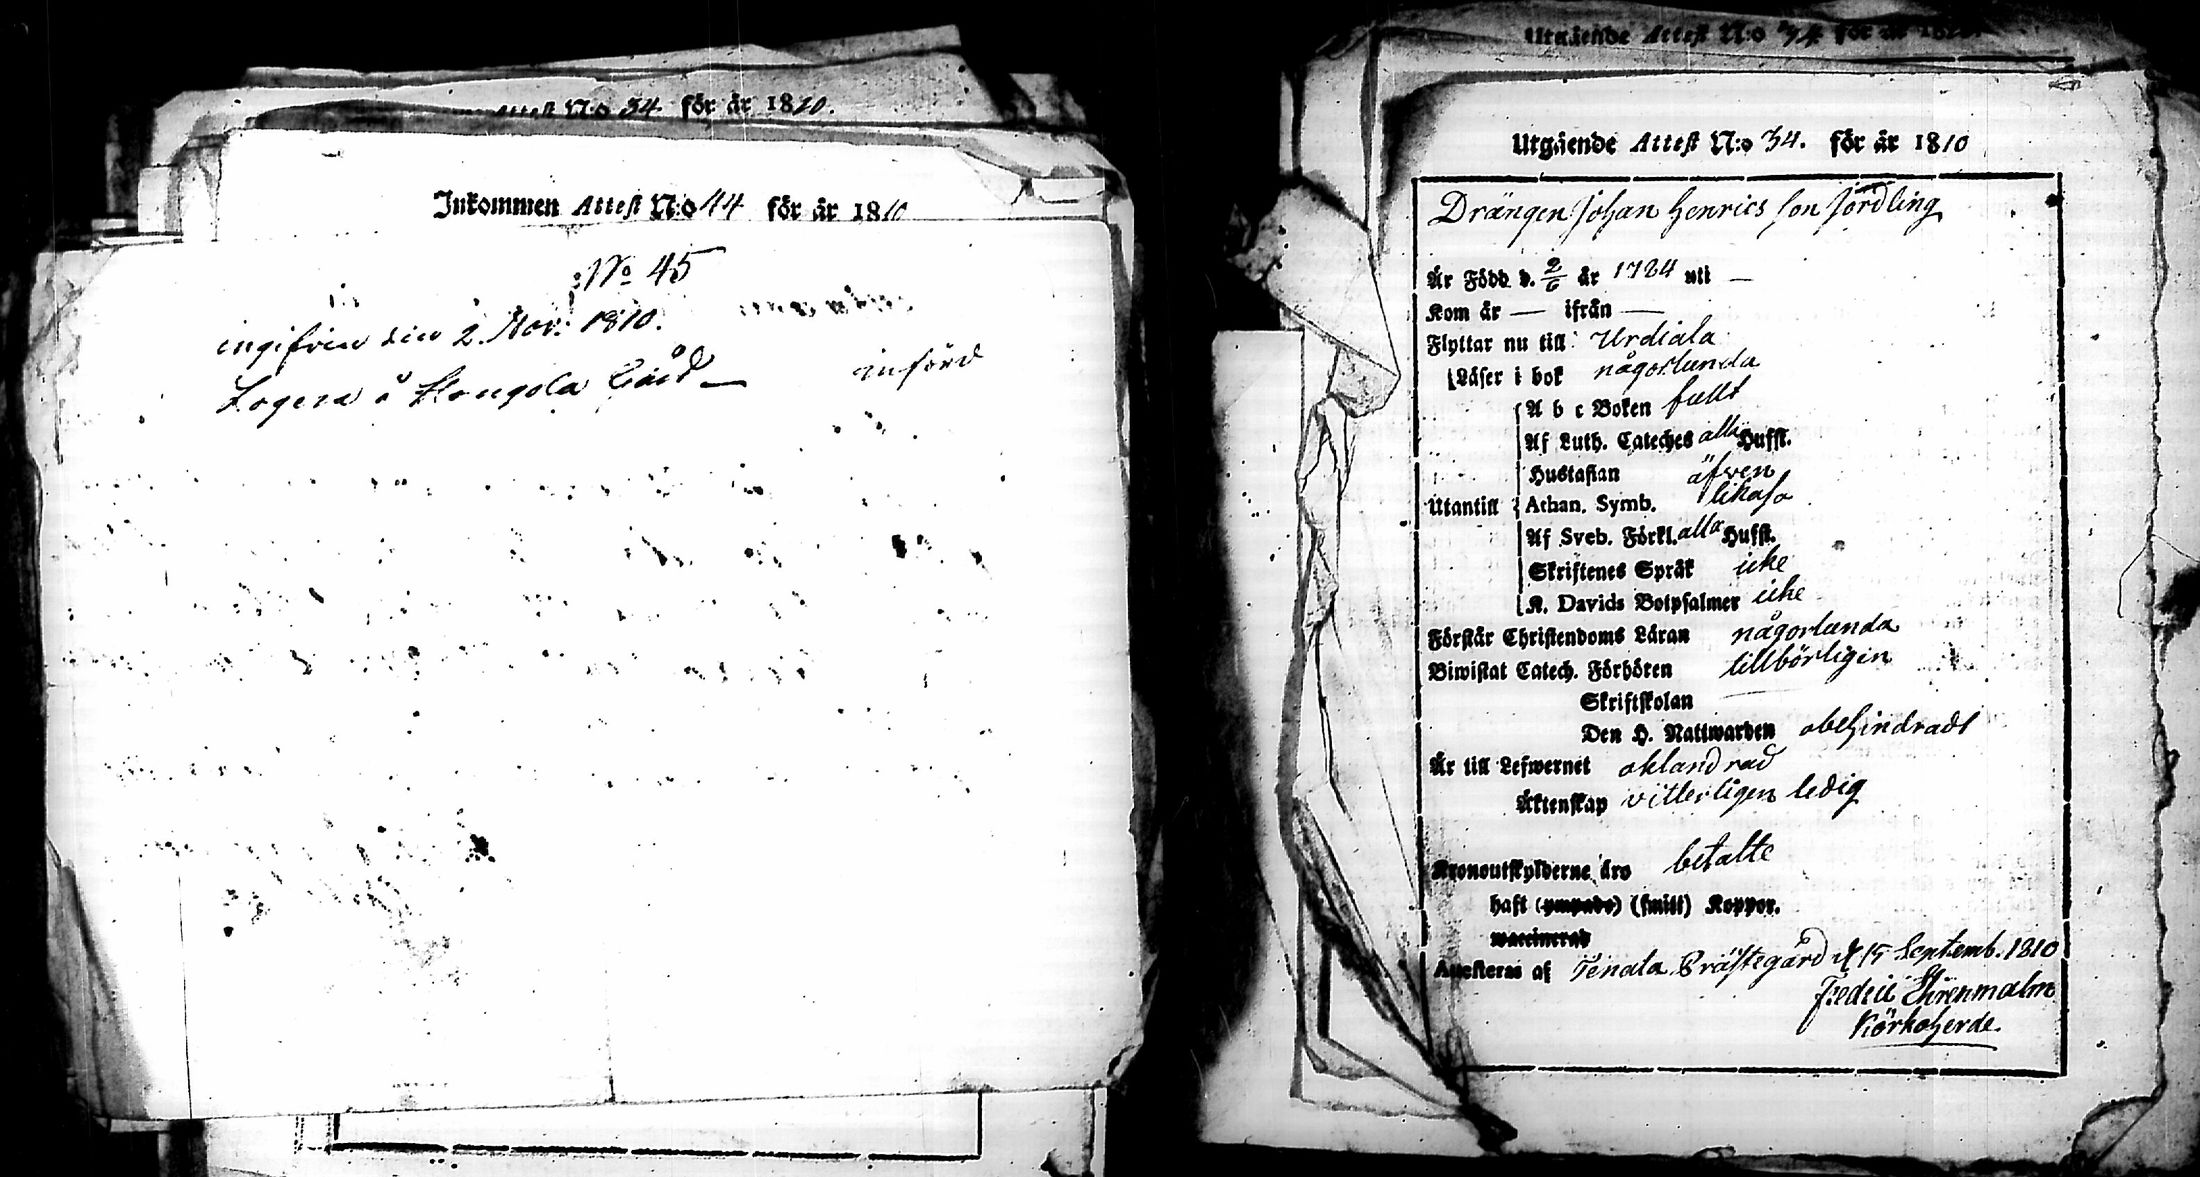 Attest N:o 34 för år 1810.
Inkommen Attest N:o 44 för år 1810
No 45
ingifven den 2. Nov: 1810.
införd
Utgående Attest N:o 34 för år 1810.
Utgående Attest N:o 34. för år 1810
Drängen Johan Henrics son Jordling
Är Född d. 2/6 år 1784 uti —
Kom år — ifrån —
Flyttar nu till Urdiala
Läser i bok någorlunda
A b c Boken fullt
Af Luth. Cateches alla Hufst.
Hustaflan äfwen
Utantill Athan. Symb. likaså
Af Sveb. Förkl. alla Hufst.
Skriftenes Språk icke
K. Davids Botpsalmer icke
Förstår Christendoms Läran någorlunda
Biwistat Catech. Förhören tillbörligen
Skriftskolan
Den H. Nattwarden obehindradt
Är till Lefwernet oklandrad
Äktenskap vitterligen ledig
Kronoutskylderne äro betalte
haft (ympade) (smitt) Koppor.
waccinerad
Attesteras af Tenala Prästegård d. 15 Septemb. 1810
Fredric Ehrenmalm
Körkoherde.